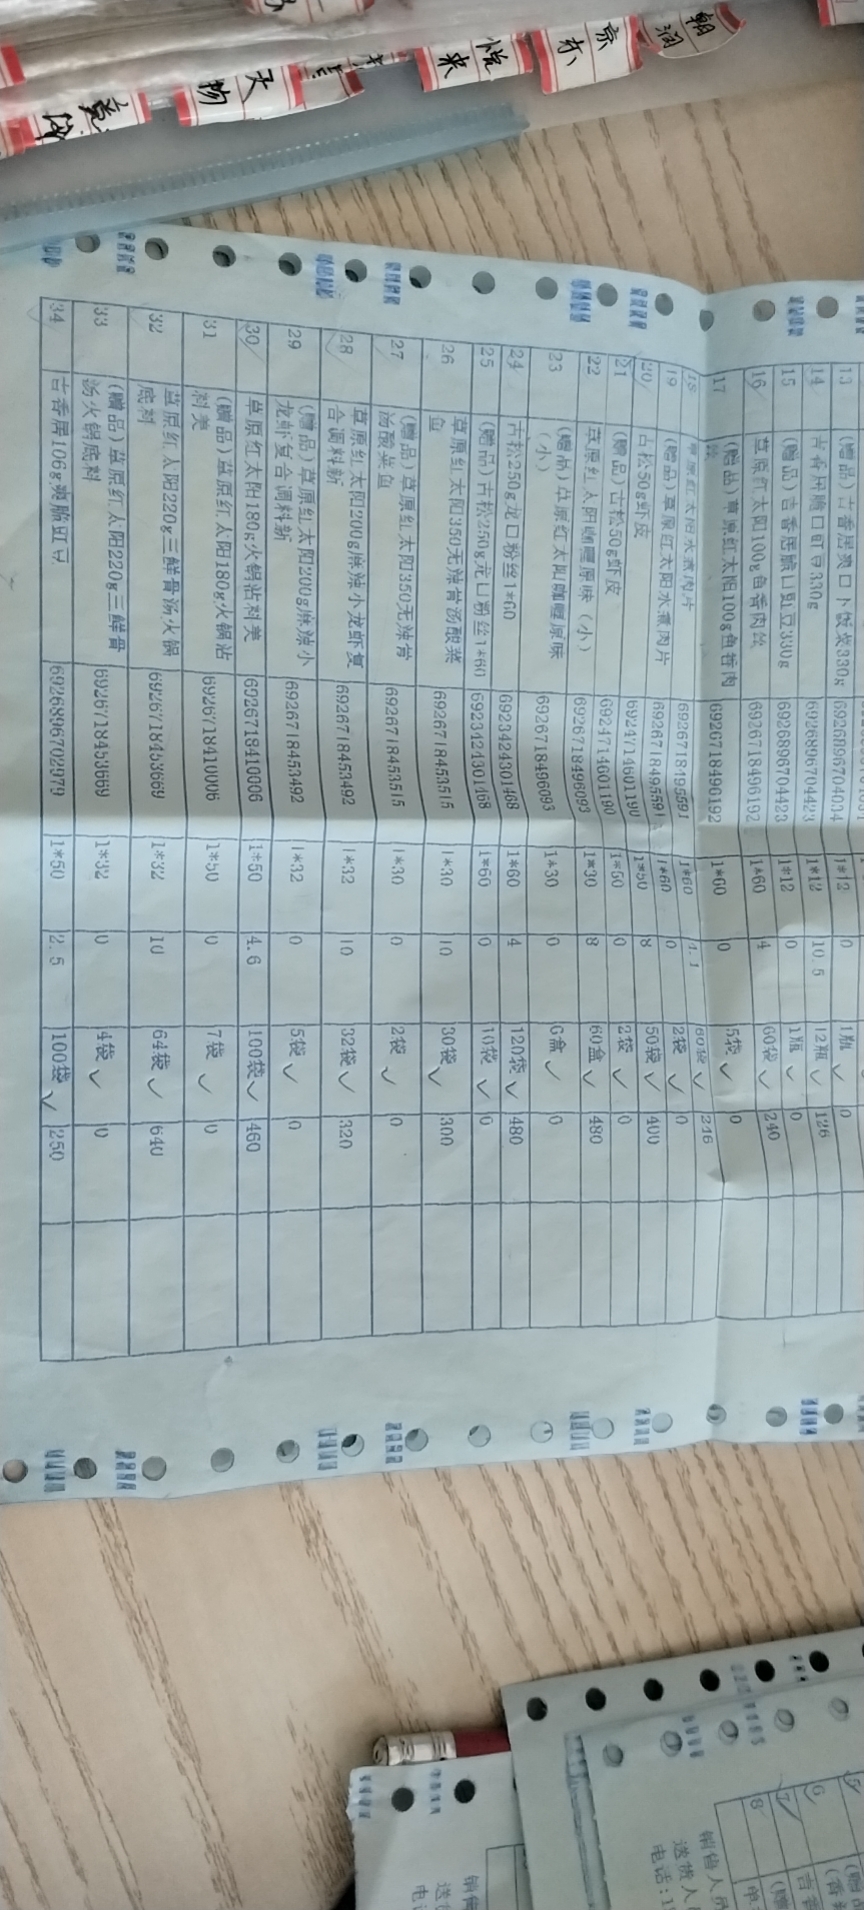 13 (赠品)吉香居爽口下饭菜330g 6926896704034 1*12 0 1瓶 0
14 吉香居脆口豇豆330g 6926896704423 1*12 10.5 12瓶 126
15 (赠品)吉香居脆口豇豆330g 6926896704423 1*12 0 1瓶 0
16 草原红太阳100g鱼香肉丝 6926718496192 1*60 4 60袋 240
17 (赠品)草原红太阳100g鱼香肉
丝 6926718496192 1*60 0 5袋 0
18 草原红太阳水煮肉片 6926718495591 1*60 4.1 60袋 246
19 (赠品)草原红太阳水煮肉片 6926718495591 1*60 0 2袋 0
20 古松50g虾皮 6924714601190 1*50 8 50袋 400
21 (赠品)古松50g虾皮 6924714601190 1*50 0 2袋 0
22 草原红太阳咖喱原味(小) 6926718496093 1*30 8 60盒 480
23 (赠品)草原红太阳咖喱原味
(小) 6926718496093 1*30 0 6盒 0
24 古松250g龙口粉丝1*60 6923424301468 1*60 4 120袋 480
25 (赠品)古松250g龙口粉丝1*60 6923424301468 1*60 0 10袋 0
26 草原红太阳350无辣骨汤酸菜
鱼 6926718453515 1*30 10 30袋 300
27 (赠品)草原红太阳350无辣骨
汤酸菜鱼 6926718453515 1*30 0 2袋 0
28 草原红太阳200g麻辣小龙虾复
合调料新 6926718453492 1*32 10 32袋 320
29 (赠品)草原红太阳200g麻辣小
龙虾复合调料新 6926718453492 1*32 0 5袋 0
30 草原红太阳180g火锅沾料美 6926718410006 1*50 4.6 100袋 460
31 (赠品)草原红太阳180g火锅沾
料美 6926718410006 1*50 0 7袋 0
32 草原红太阳220g三鲜骨汤火锅
底料 6926718453669 1*32 10 64袋 640
33 (赠品)草原红太阳220g三鲜骨
汤火锅底料 6926718453669 1*32 0 4袋 0
34 吉香居106g爽脆豇豆 6926896702979 1*50 2.5 100袋 250
朝润
京东
悦来
天物
5
6
7
8
销售人员
送货人
电话:1
销售
送货